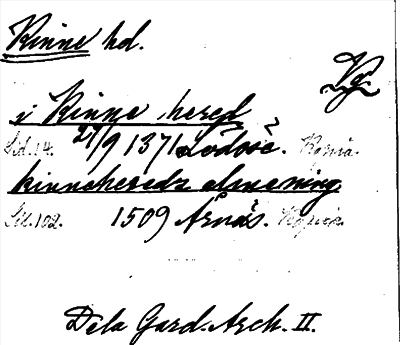 Kinne hd.
Vg.
i Kinne heredh
Sid. 14. 21/9 1371 Lödöse. Kopia.
kinnehereds almenning
Sid. 102. 1509 Årnäs. Kopia.
Dela Gard. Arch. II.